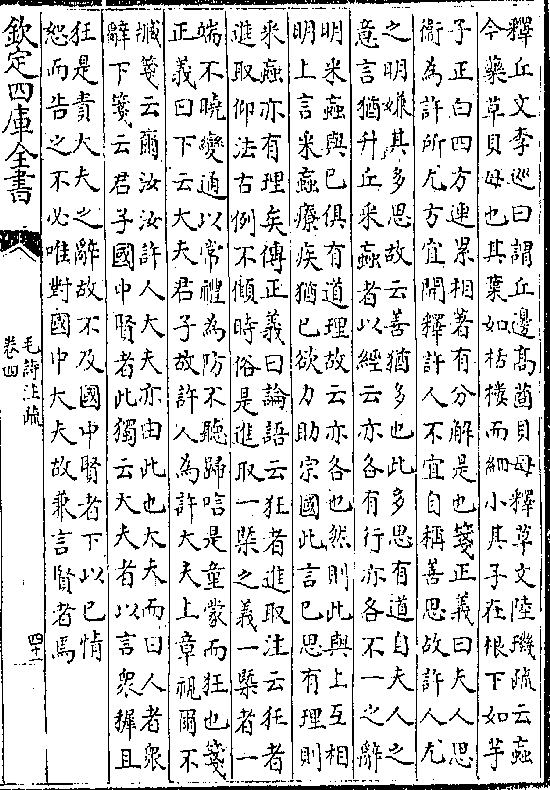 釋丘文李巡曰謂丘邊髙茵貝母釋草文陸璣疏云蝱
今藥草貝母也其葉如栝樓而細小其子在根下如芋
子正白四方連累相著有分解是也箋正義曰夫人思
衛為許所尤方宜開釋許人不宜自稱善思故許人尤
之明嫌其多思故云善猶多也此多思有道自夫人之
意言猶升丘采蝱者以經云亦各有行亦各不一之辭
明采蝱與已俱有道理故云亦各也然則此與上互相
明上言采蝱療疾猶已欲力助宗國此言已思有理則
采蝱亦有理矣傳正義曰論語云狂者進取注云狂者
進取仰法古例不傾時俗是進取一槩之義一槩者一
端不曉變通以常禮為防不聽歸唁是童蒙而狂也箋
正義曰下云大夫君子故許人為許大夫上章視爾不
臧箋云爾汝汝許人大夫亦由此也大夫而曰人者衆
辭下箋云君子國中賢者此獨云大夫者以言衆穉且
狂是責大夫之辭故不及國中賢者下以已情
恕而告之不必唯對國中大夫故兼言賢者焉
欽定四庫全書
毛詩注疏
卷四
四十一